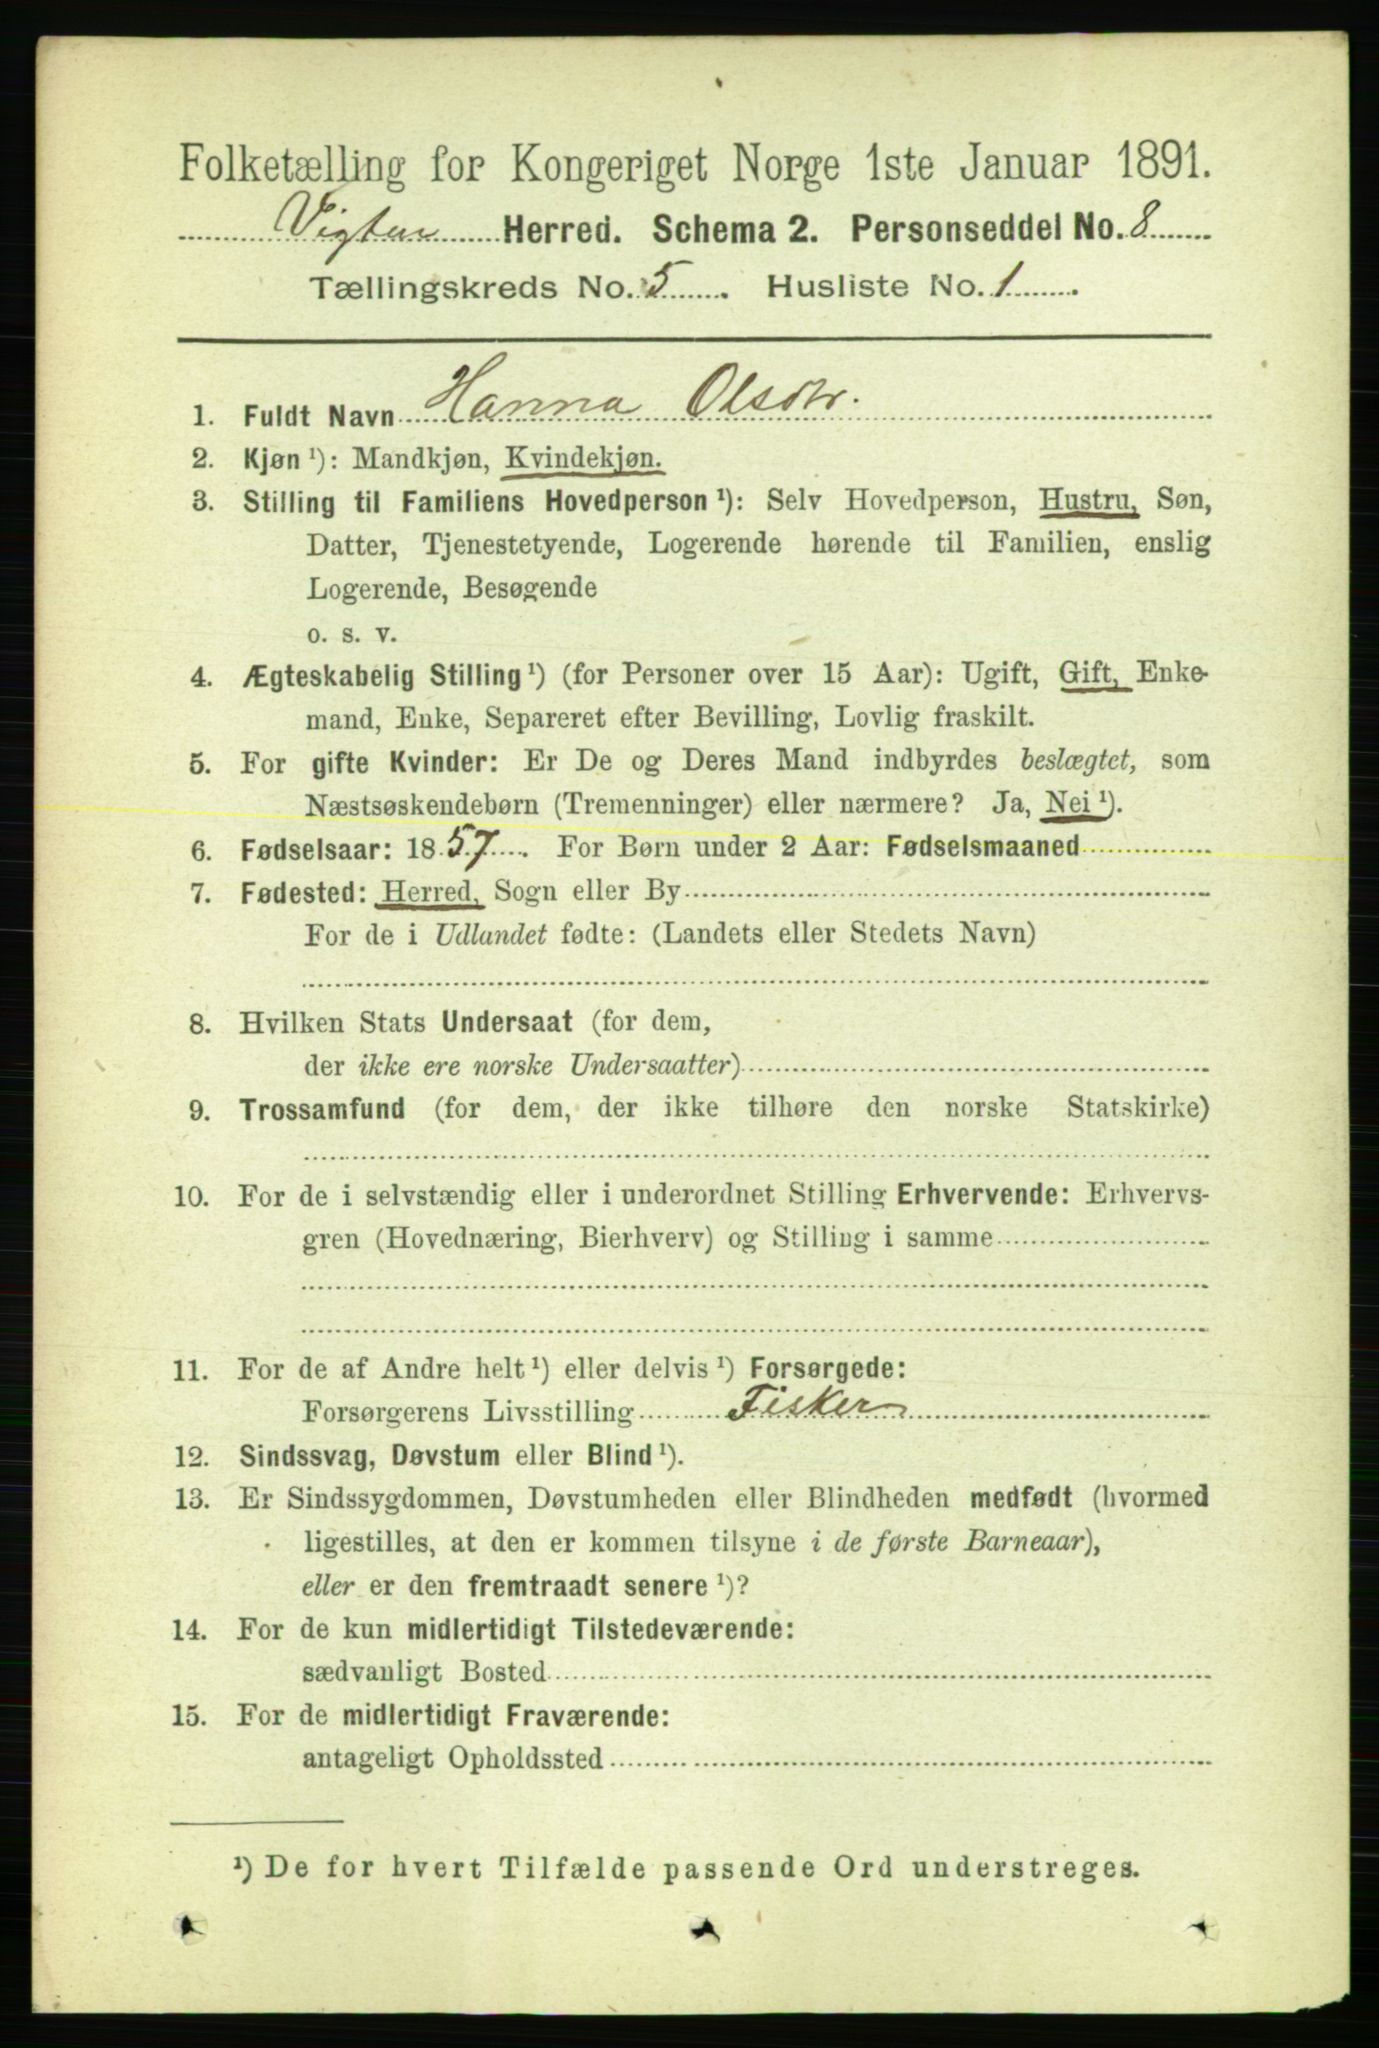 Folketælling for Kongeriget Norge 1ste Januar 1891.
Vigten Herred. Schema 2. Personseddel No. 8
Tællingskreds No. 5. Husliste No. 1.
1. Fuldt Navn Hanna Olsdtr.
2. Kjøn ¹): Mandkjøn, Kvindekjøn.
3. Stilling til Familiens Hovedperson ¹): Selv Hovedperson, Hustru, Søn,
Datter, Tjenestetyende, Logerende hørende til Familien, enslig
Logerende, Besøgende
o. s. v.
4. Ægteskabelig Stilling ¹) (for Personer over 15 Aar): Ugift, Gift, Enke-
mand, Enke, Separeret efter Bevilling, Lovlig fraskilt.
5. For gifte Kvinder: Er De og Deres Mand indbyrdes beslægtet, som
Næstsøskendebørn (Tremenninger) eller nærmere? Ja, Nei ¹).
6. Fødselsaar: 1857. For Børn under 2 Aar: Fødselsmaaned
7. Fødested: Herred, Sogn eller By
For de i Udlandet fødte: (Landets eller Stedets Navn)
8. Hvilken Stats Undersaat (for dem,
der ikke ere norske Undersaatter)
9. Trossamfund (for dem, der ikke tilhøre den norske Statskirke)
10. For de i selvstændig eller i underordnet Stilling Erhvervende: Erhvervs-
gren (Hovednæring, Bierhverv) og Stilling i samme
11. For de af Andre helt ¹) eller delvis ¹) Forsørgede:
Forsørgerens Livsstilling Fisker
12. Sindssvag, Døvstum eller Blind ¹).
13. Er Sindssygdommen, Døvstumheden eller Blindheden medfødt (hvormed
ligestilles, at den er kommen tilsyne i de første Barneaar),
eller er den fremtraadt senere ¹)?
14. For de kun midlertidigt Tilstedeværende:
sædvanligt Bosted
15. For de midlertidigt Fraværende:
antageligt Opholdssted
¹) De for hvert Tilfælde passende Ord understreges.